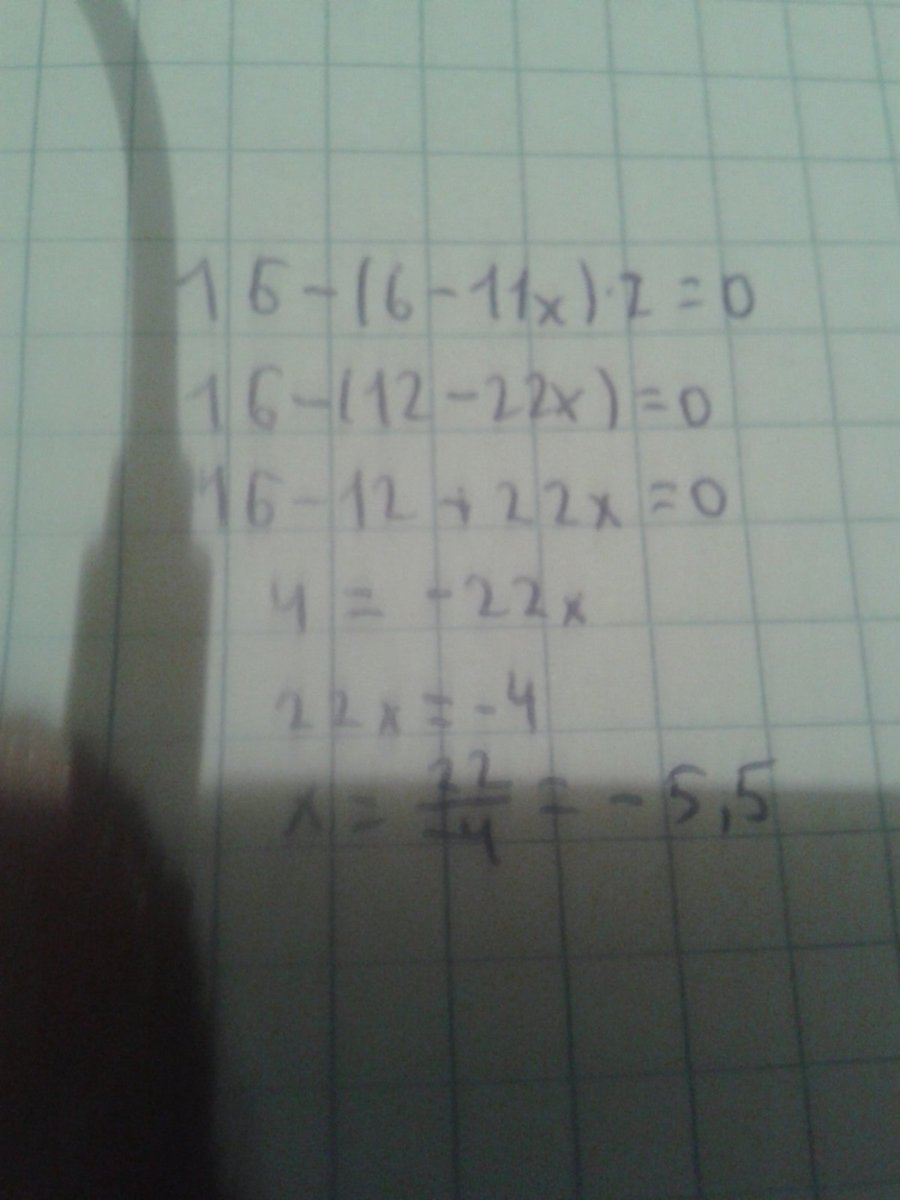 16-(6-11x)·2=0
16-(12-22x)=0
16-12+22x=0
4=-22x
22x=-4
x=22/-4=-5,5